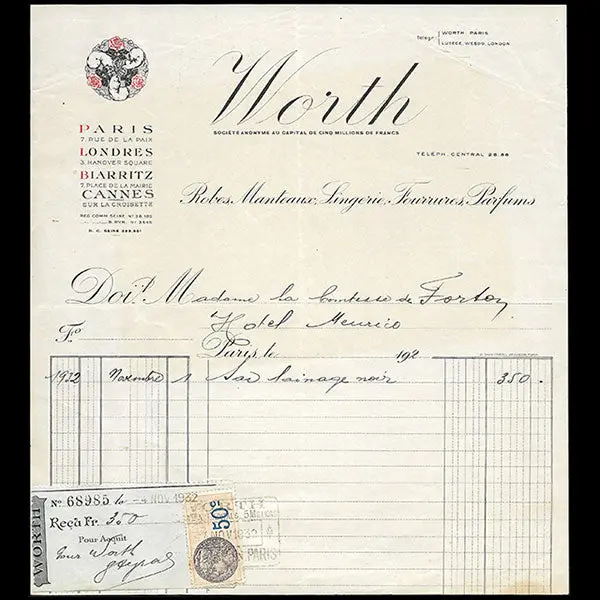 Telegr.
WORTH PARIS
LUTECE, WESDO, LONDON
Worth
SOCIÉTÉ ANONYME AU CAPITAL DE CINQ MILLIONS DE FRANCS
TELEPH. CENTRAL 28.66
PARIS
7, RUE DE LA PAIX
LONDRES
3, HANOVER SQUARE
BIARRITZ
7, PLACE DE LA MAIRIE
CANNES
SUR LA CROISETTE
REG COMM SEINE
R. C. SEINE
Robes, Manteaux, Lingerie, Fourrures, Parfums
Doit Madame la Comtesse de
Hotel Meurice
Fo
Paris, le 192
1932 Novembre 1 Sac lainage noir 350 .
WORTH
No 68985 le -4 NOV 1932
Reçu Fr. 350
Pour Acquit
Pour Worth
50c
NOV 1932
PARIS